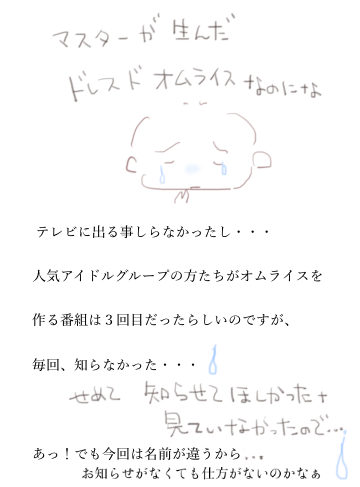 マスターが生んだ
ドレスドオムライスなのにな
テレビに出る事しらなかったし・・・
人気アイドルグループの方たちがオムライスを
作る番組は３回目だったらしいのですが、
毎回、知らなかった・・・
せめて 知らせてほしかったナ
見ていなかったので…
あっ！でも今回は名前が違うから...
お知らせがなくても仕方がないのかなぁ